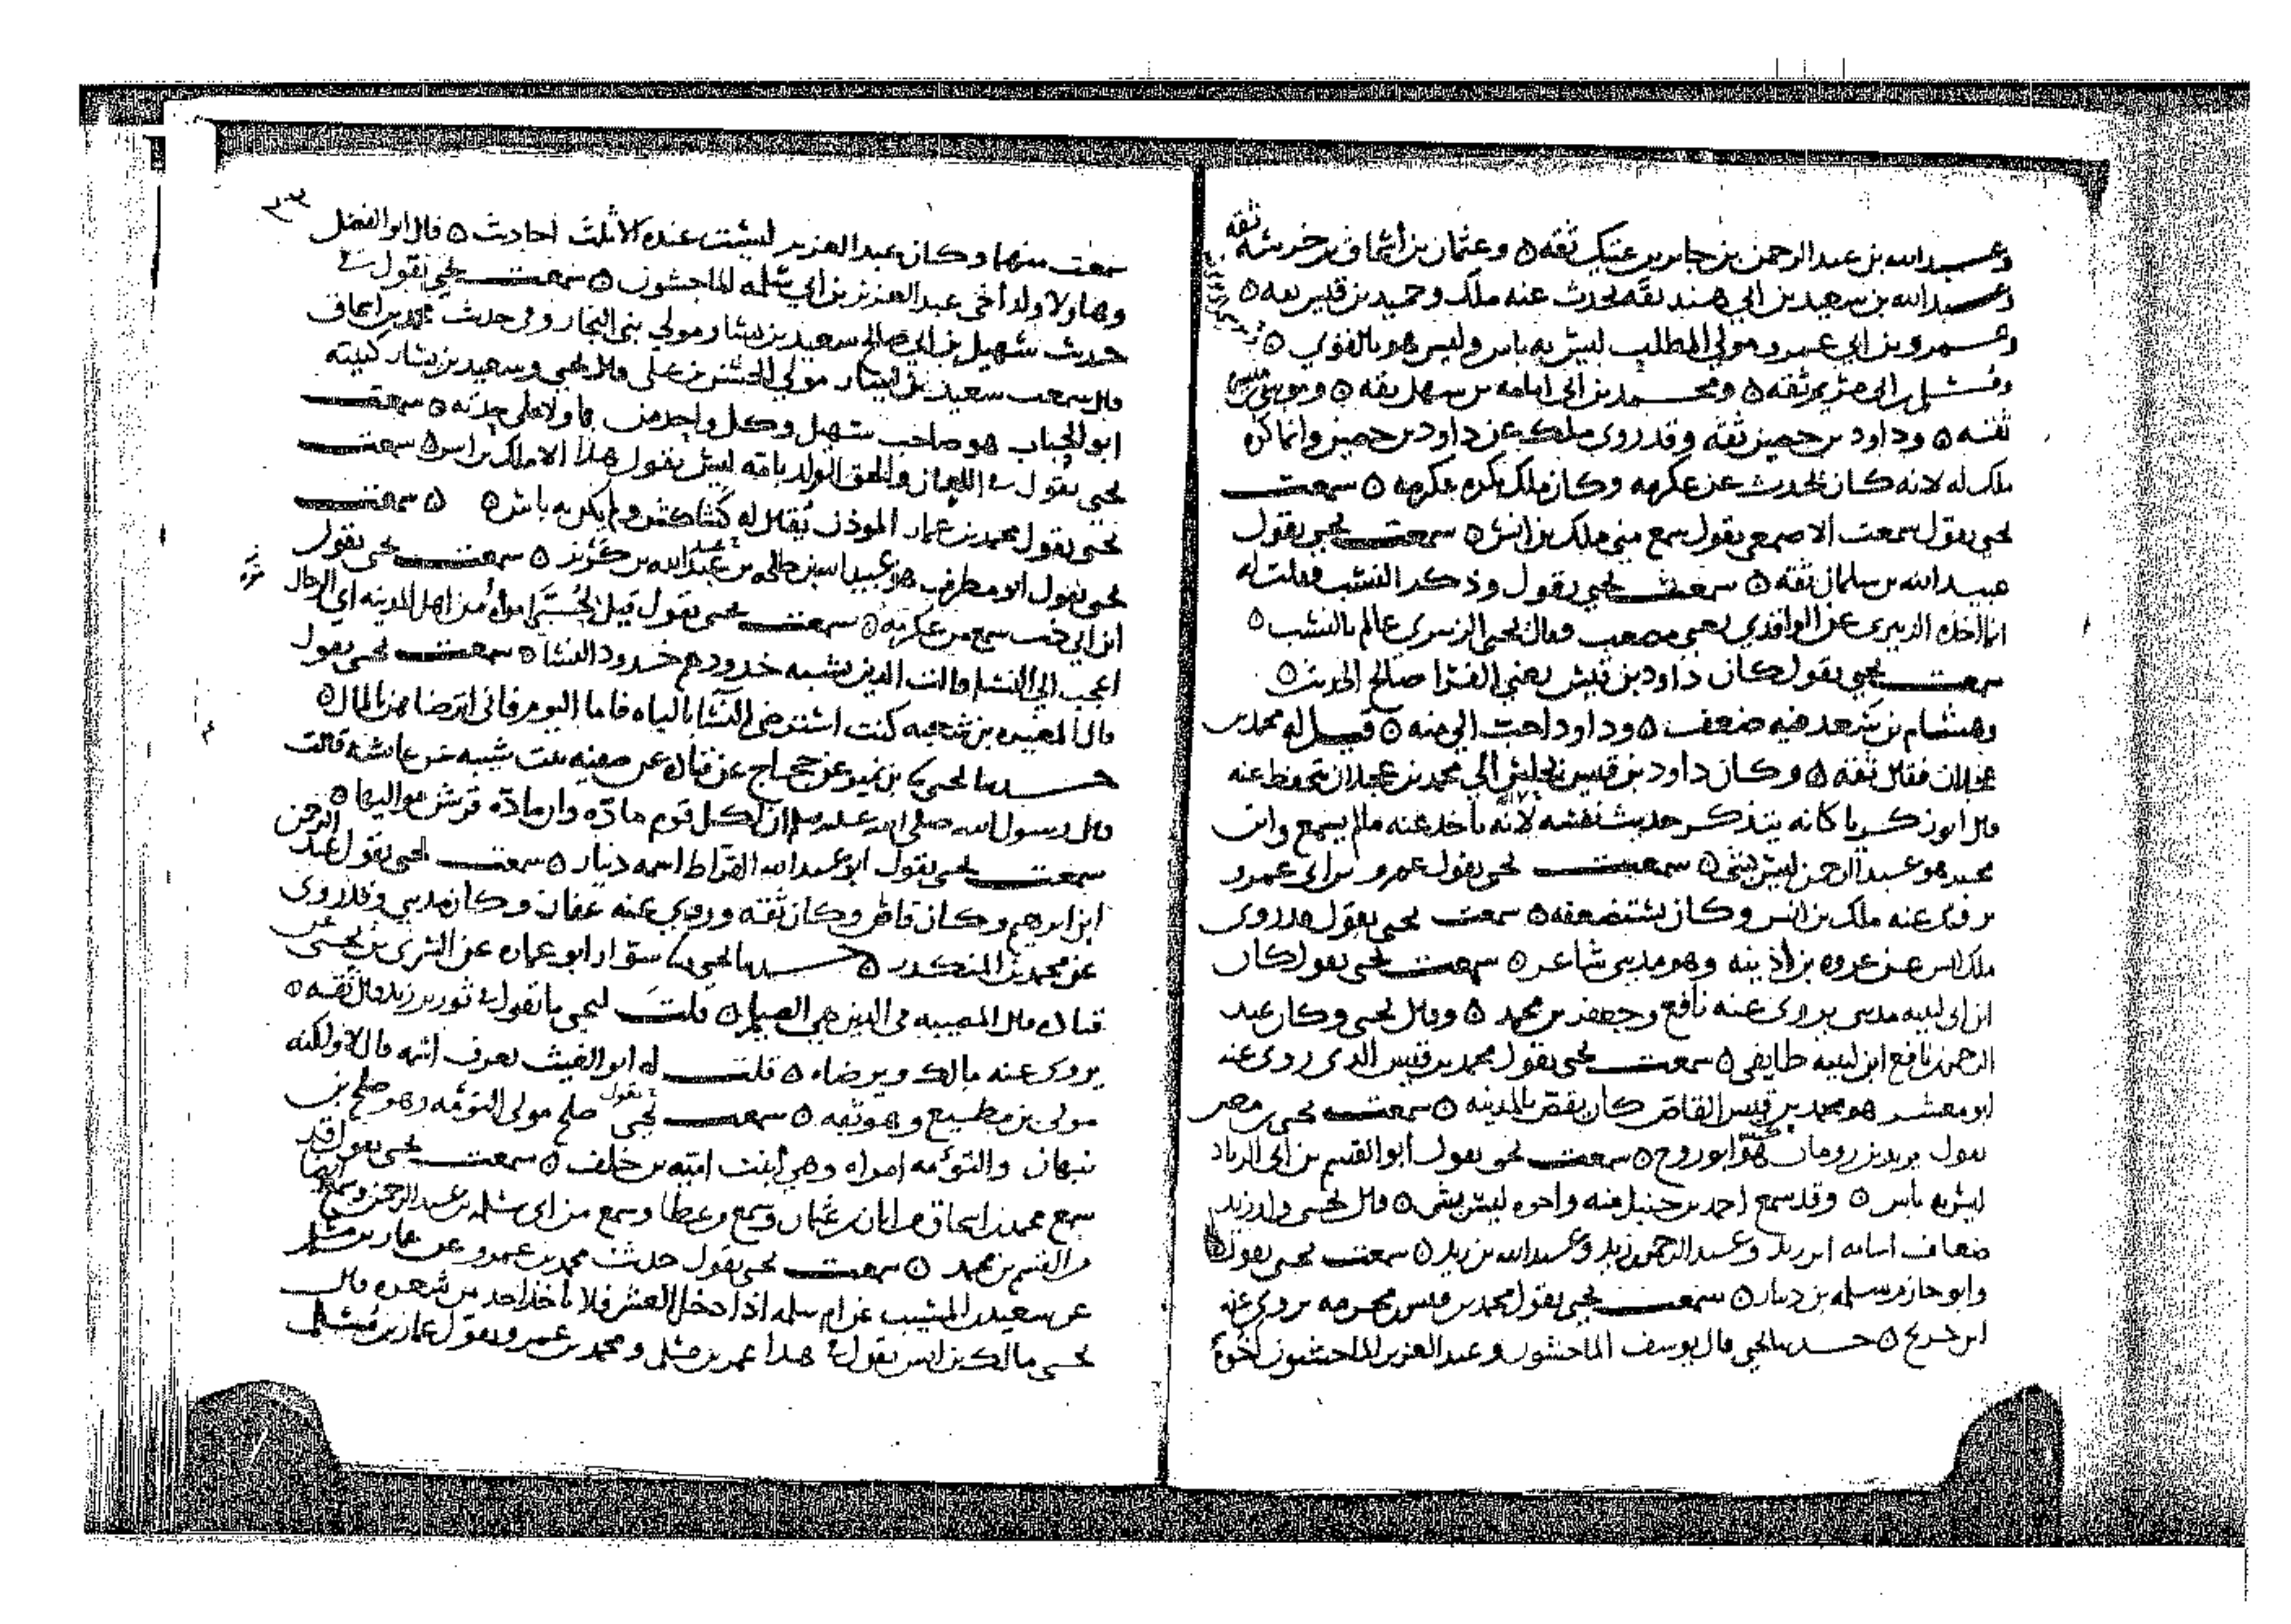 وعبيد الله بن عبد الرحمن بن جابر بن عتيك ثقه ٥ وعثمان بن اسحاق بن خرشه ثقه
وعبد الله بن سعيد بن ابي هند ثقه يحدث عنه ملك وحميد بن قيس ثقه ٥
وعمرو بن ابي عمرو مولي المطلب ليس به باس وليس هو بالقوي ٥
ومسلم بن ابي مريم ثقه ٥ ومحمد بن ابي امامه بن سهل ثقه ٥ وموسى بن
ثقه ٥ وداود بن حصين ثقه وقد روى ملك عن داود بن حصين وانما كره
ملك له لانه كان يحدث عن عكرمه وكان ملك يكره عكرمه ٥ سمعت
يحيى يقول سمعت الاصمعي يقول سمع مني ملك بن انس ٥ سمعت يحيى يقول
عبيد الله بن سلمان ثقه ٥ سمعت يحيى يقول وذكر النسب فقلت له
انما اخذه الزبيري عن الواقدي يعني مصعب فقال يحيى الزبيري عالم بالنسب ٥
سمعت يحيى يقول كان داود بن قيس يعني الفرا صالح الحديث ٥
وهشام بن سعد فيه ضعف ٥ وداود احب الي منه ٥ قيل له محمد بن
عجلان فقال ثقه ٥ وكان داود بن قيس يجلس الي محمد بن عجلان يتحفظ عنه
قال ابو زكريا كانه يتذكر حديث نفسه لانه ياخذ عنه ما لم يسمع وابن
محمد هو عبد الرحمن ليس بشي ٥ سمعت يحيى يقول عمرو بن ابي عمرو
يروى عنه ملك بن انس وكان يستضعفه ٥ سمعت يحيى يقول قد روى
ملك بن انس عن عروه بن اذينه وهو مديني شاعر ٥ سمعت يحيى يقول كان
ابن ابي لبيبه مديني يروى عنه نافع وجعفر بن محمد ٥ وقال يحيى وكان عبد
الرحمن بن نافع ابن لبيبه طايفي ٥ سمعت يحيى يقول محمد بن قيس الذي روى عنه
ابو معشر هو محمد بن قيس القاص كان يقص بالمدينه ٥ سمعت يحيى بن معين
يقول يزيد بن رومان هو ابو روح ٥ سمعت يحيى يقول ابو القسم بن ابي الزناد
ليس به باس ٥ وقد سمع احمد بن حنبل منه واخوه ليس بشي ٥ قال يحيى ولد زيد
ضعاف اسامه ابن زيد وعبد الرحمن بن زيد وعبد الله بن زيد ٥ سمعت يحيى يقول
وابو حازم سلمه بن دينار ٥ سمعت يحيى يقول محمد بن قيس بن مخرمه يروى عنه
ابن جريج ٥ حدثنا يحيى قال يوسف الماجشون وعبد العزيز الماجشون اخوه
سمعت منها وكان عبد العزيز ليست عنده الا ثلث احاديث ٥ قال ابو الفضل
وهاولا ولد اخي عبد العزيز بن ابي سلمه الماجشون ٥ سمعت يحيى يقول في
حديث سهيل بن ابي صالح سعيد بن يسار مولي بني النجار وفي حديث محمد بن اسحاق
قال سمعت سعيد بن يسار مولي الحسن بن علي قال يحيى وسعيد بن يسار كنيته
ابو الحباب هو صاحب سهيل وكل واحد من هاولا على حدته ٥ سمعت
يحيى يقول في اللعان والحق الولد بامه ليس يقول هذا الا ملك بن انس ٥ سمعت
يحيى يقول محمد بن عمار الموذن يقال له كشاكش ولم يكن به باس ٥ سمعت
يحيى يقول ابو مطرف هو عبيد الله بن طلحه بن عبيد الله بن كريز ٥ سمعت يحيى يقول
ابن ابي ذيب سمع من عكرمه ٥ سمعت يحيى يقول قيل لحبى امراه من اهل المدينه اي الرجال
اعجب الى النسا قالت الذين يشبه خدودهم خدود النسا ٥ سمعت يحيى يقول
قال المغيره بن شعبه كنت استرضي النسا بالباه فاما اليوم فاني اترضا هن بالمال ٥
حدثنا يحيى بن نمير عن حجاج عن قتاده عن صفيه بنت شيبه عن عايشه قالت
قال رسول الله صلى الله عليه وسلم ان لكل قوم مادّه وان مادّه قريش مواليها ٥
سمعت يحيى يقول ابو عبد الله القراظ اسمه دينار ٥ سمعت يحيى يقول عبد الرحمن
ابن ابرهيم وكان قاص وكان ثقه وروى عنه عفان وكان مديني وقد روى
عن محمد بن المنكدر ٥ حدثنا يحيى سوار ابو عماره عن السري بن يحيى عن
قتاده قال المصيبه في الدين هي الصيلم ٥ قلت ليحيى ما تقول في ثور بن زيد قال ثقه ٥
يروى عنه مالك ويرضاه ٥ قلت له ابو الغيث يعرف اسمه قال لا ولكنه
مولى بن مطيع وهو ثقه ٥ سمعت يحيى يقول صلح مولى التوءمه وهو صلح بن
نبهان والتوءمه امراه وهي ابنت اميه بن خلف ٥ سمعت يحيى يقول قد
سمع محمد بن اسحاق من ابان بن عثمان وسمع وعطا وسمع من ابي سلمه بن عبد الرحمن وسمع ايضا
من القسم بن محمد ٥ سمعت يحيى يقول حديث محمد بن عمرو عن عمار بن مسلم
عن سعيد بن المسيب عن ام سلمه اذا دخل العشر فلا ياخذ احد من شعره قال
يحيى مالك بن انس يقول في هذا عمر بن مسلم ومحمد بن عمرو يقول عمار بن مسلم